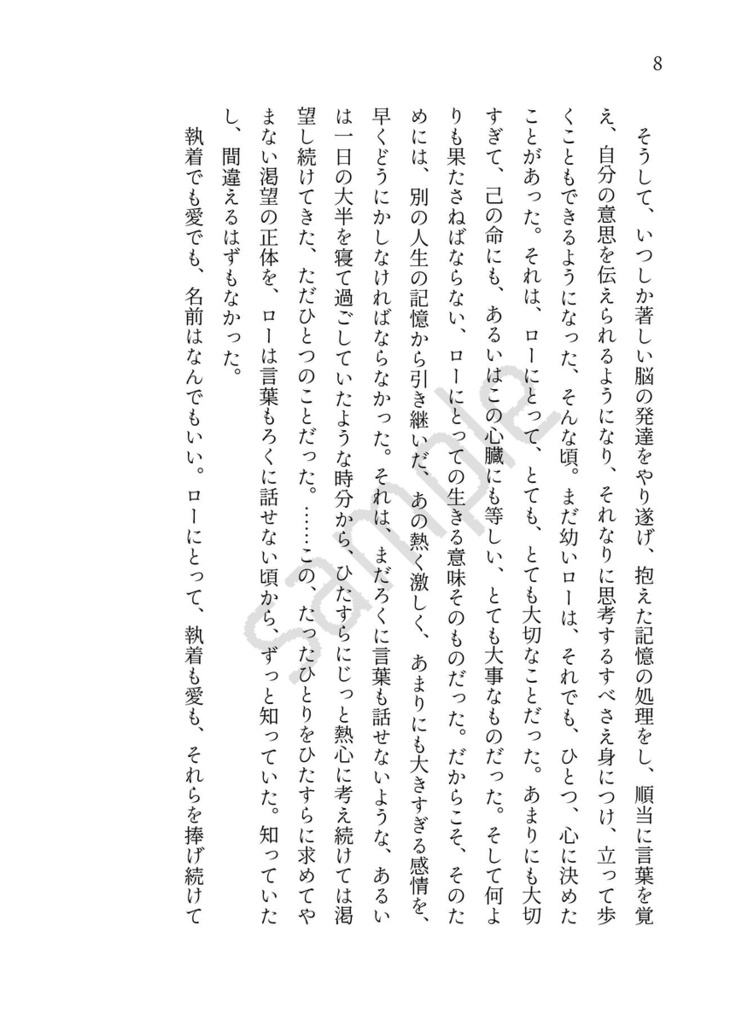 8
そうして、いつしか著しい脳の発達をやり遂げ、抱えた記憶の処理をし、順当に言葉を覚
え、自分の意思を伝えられるようになり、それなりに思考するすべさえ身につけ、立って歩
くこともできるようになった、そんな頃。まだ幼いローは、それでも、ひとつ、心に決めた
ことがあった。それは、ローにとって、とても、とても大切なことだった。あまりにも大切
すぎて、己の命にも、あるいはこの心臓にも等しい、とても大事なものだった。そして何よ
りも果たさねばならない、ローにとっての生きる意味そのものだった。だからこそ、そのた
めには、別の人生の記憶から引き継いだ、あの熱く激しく、あまりにも大きすぎる感情を、
早くどうにかしなければならなかった。それは、まだろくに言葉も話せないような、あるい
は一日の大半を寝て過ごしていたような時分から、ひたすらにじっと熱心に考え続けては渇
望し続けてきた、ただひとつのことだった。……この、たったひとりをひたすらに求めてや
まない渇望の正体を、ローは言葉もろくに話せない頃から、ずっと知っていた。知っていた
し、間違えるはずもなかった。
執着でも愛でも、名前はなんでもいい。ローにとって、執着も愛も、それらを捧げ続けて
sample